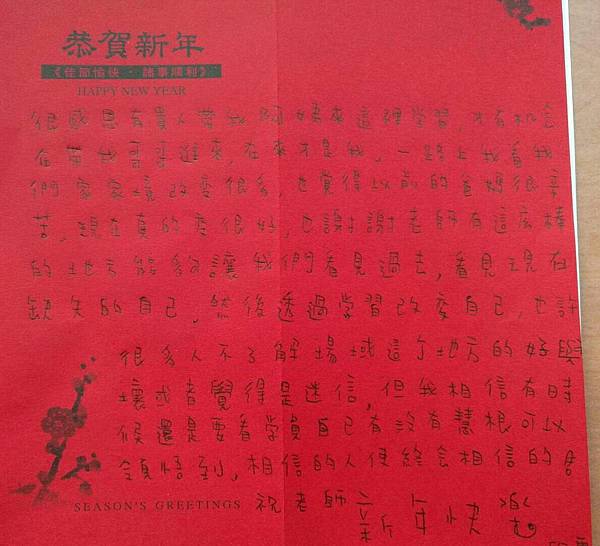 恭賀新年
《佳節愉快．諸事順利》
HAPPY NEW YEAR
很感恩有貴人帶我阿媽來這裡學習，才有机会
在帶我哥哥進來在來才是我，一路上我看我
們家家境改变很多，也覚得以前的爸媽很辛
苦，現在真的变很好，也謝謝老師有這庅棒
的地方能夠讓我們看見過去，看見現在
缺失的自己，然後透過学習改变自己，也許
很多人不了解場域這个地方的好與
壞或者覺得是迷信，但我相信有時
候還是要看学員自己有沒有慧根可以
領悟到，相信的人便終会相信的
SEASON'S GREETINGS
祝老師新年快樂